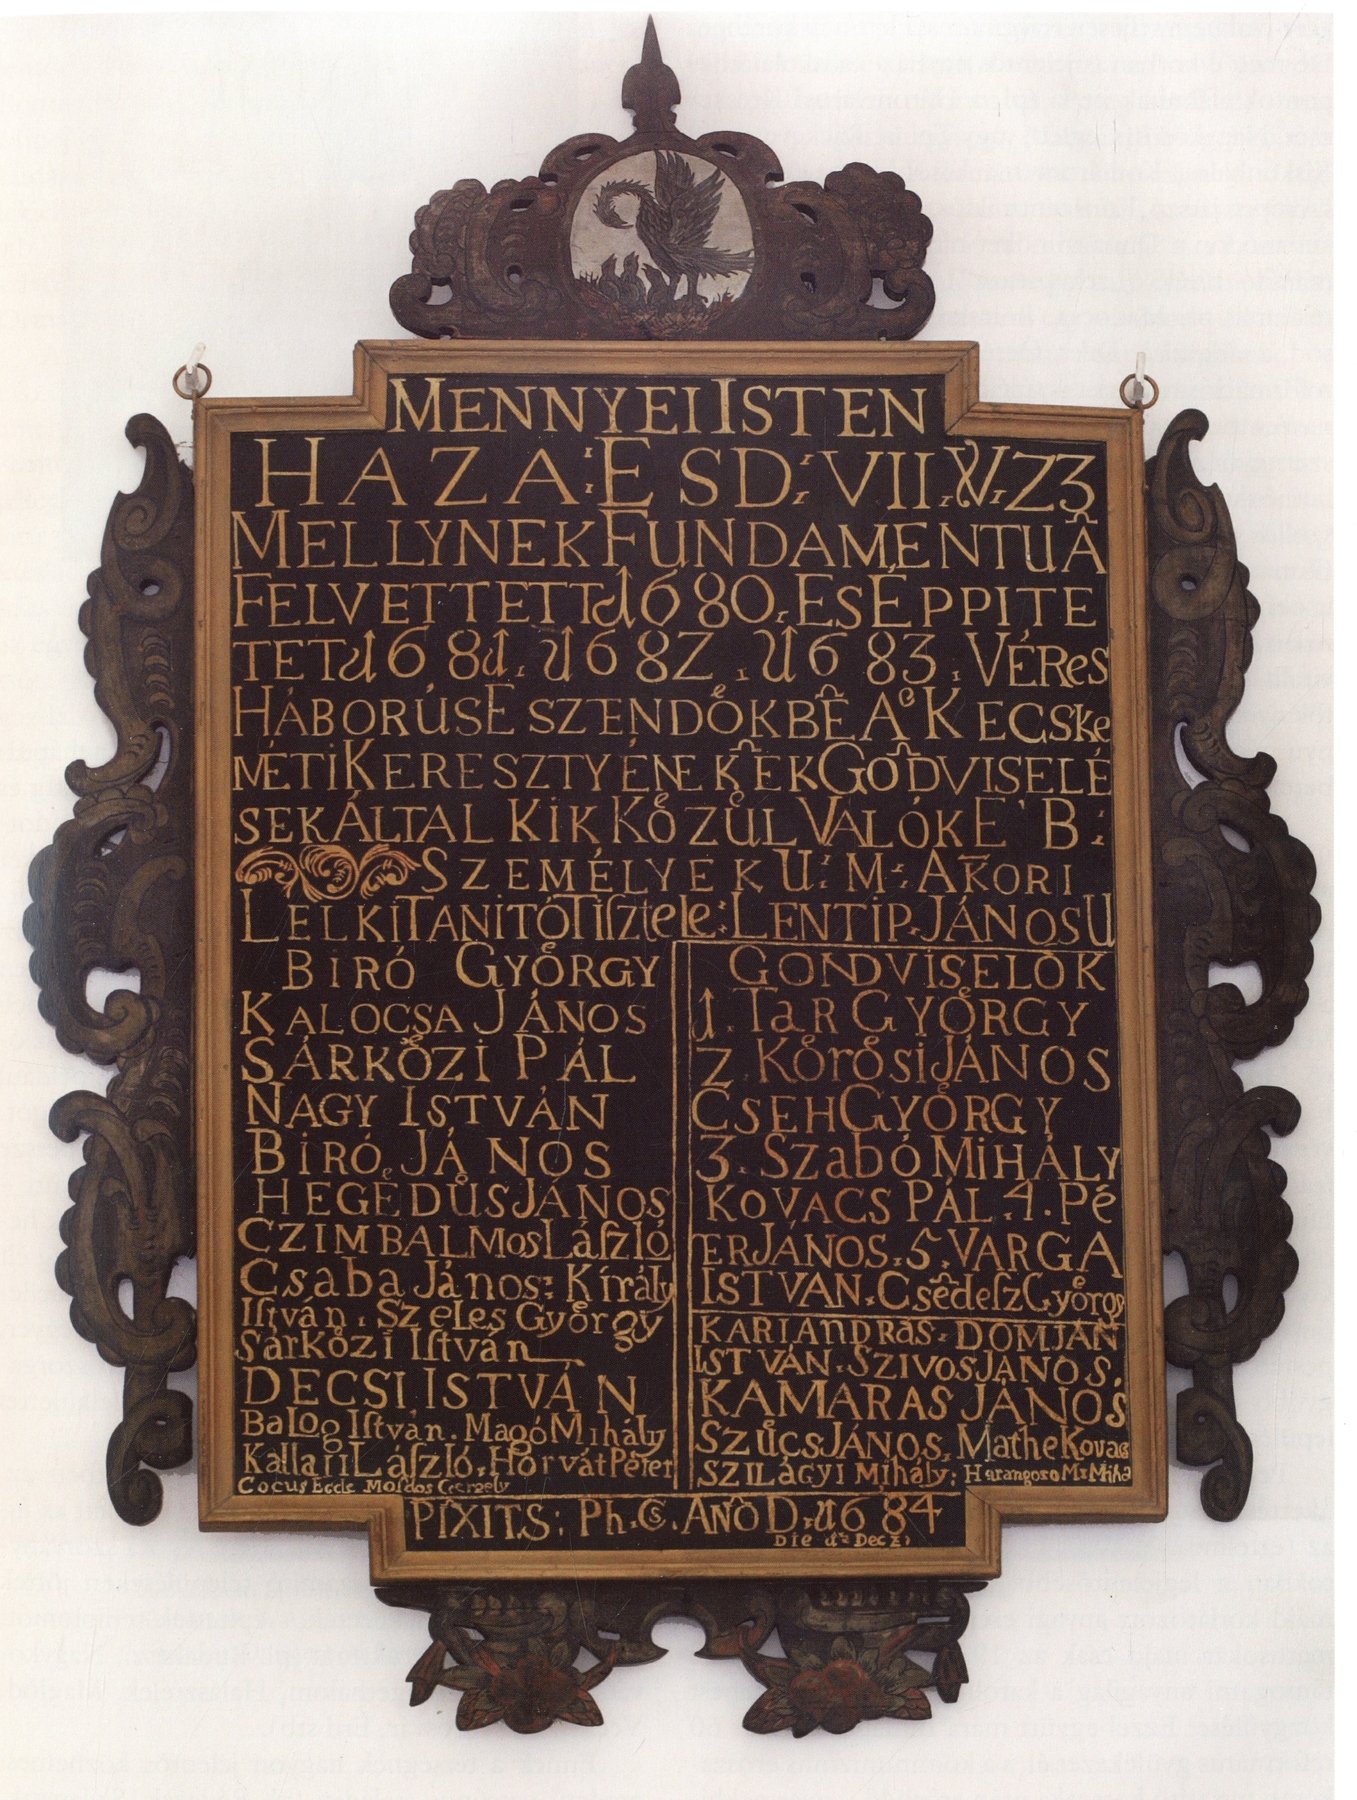 MENNYEI ISTEN
HAZA: ESD: VII. V. 23
MELLYNEK FUNDAMENTUÂ
FELVETTETT 1680. ES ÉPPITE
TET 1681. 1682. 1683. VÉReS
HÁBORÚS ESZENDŐKBÊ A KECSKe
MÉTI KERESZTYÉNEKÊK GOÑDVISELÉ
SEK ÁLTAL KIK KŐZŰL VALÓK E' B:
SZEMÉLYEK U: M: AKORI
LELKI TANITÓ Tiſztele: LENTI P. JÁNOS U
BIRÓ GYŐRGY
KALOCSA JÁNOS
SÁRKŐZI PÁL
NAGY ISTVÁN
BIRÓ JÁNOS
HEGEDŰS JÁNOS
CZIMBALMOS Láſzló
Csaba János: Király
Iſtván. SzeLes Győrgy
Sárkőzi Iſtván
DECSI ISTVÁN
BaLog Iſtván. Magó Mihály
Kallai Láſzló. Horvát Péter
Cocus Eccle Moldos Gergely
GONDVISELŐK
1. TaR GYŐRGY
2. KŐRŐSI JÁNOS
CSEH GYŐRGY
3. Szabó MIHÁLY
KOVACS PÁL. 4. Pé
TER JÁNOS. 5. VARGA
ISTVAN. Csêdeſz Győrgy
KARI ANDRÁS. DOMJÁN
ISTVÁN. SZIVOS JÁNOS.
KAMARAS JÁNOS
SZŰCS JÁNOS. Mathe Kovacs
SZILÁGYI Mihály: Harangozo Mr Miha
PIXIT. S: Ph. Cs. ANÔ D. 1684
Die 1a Dec